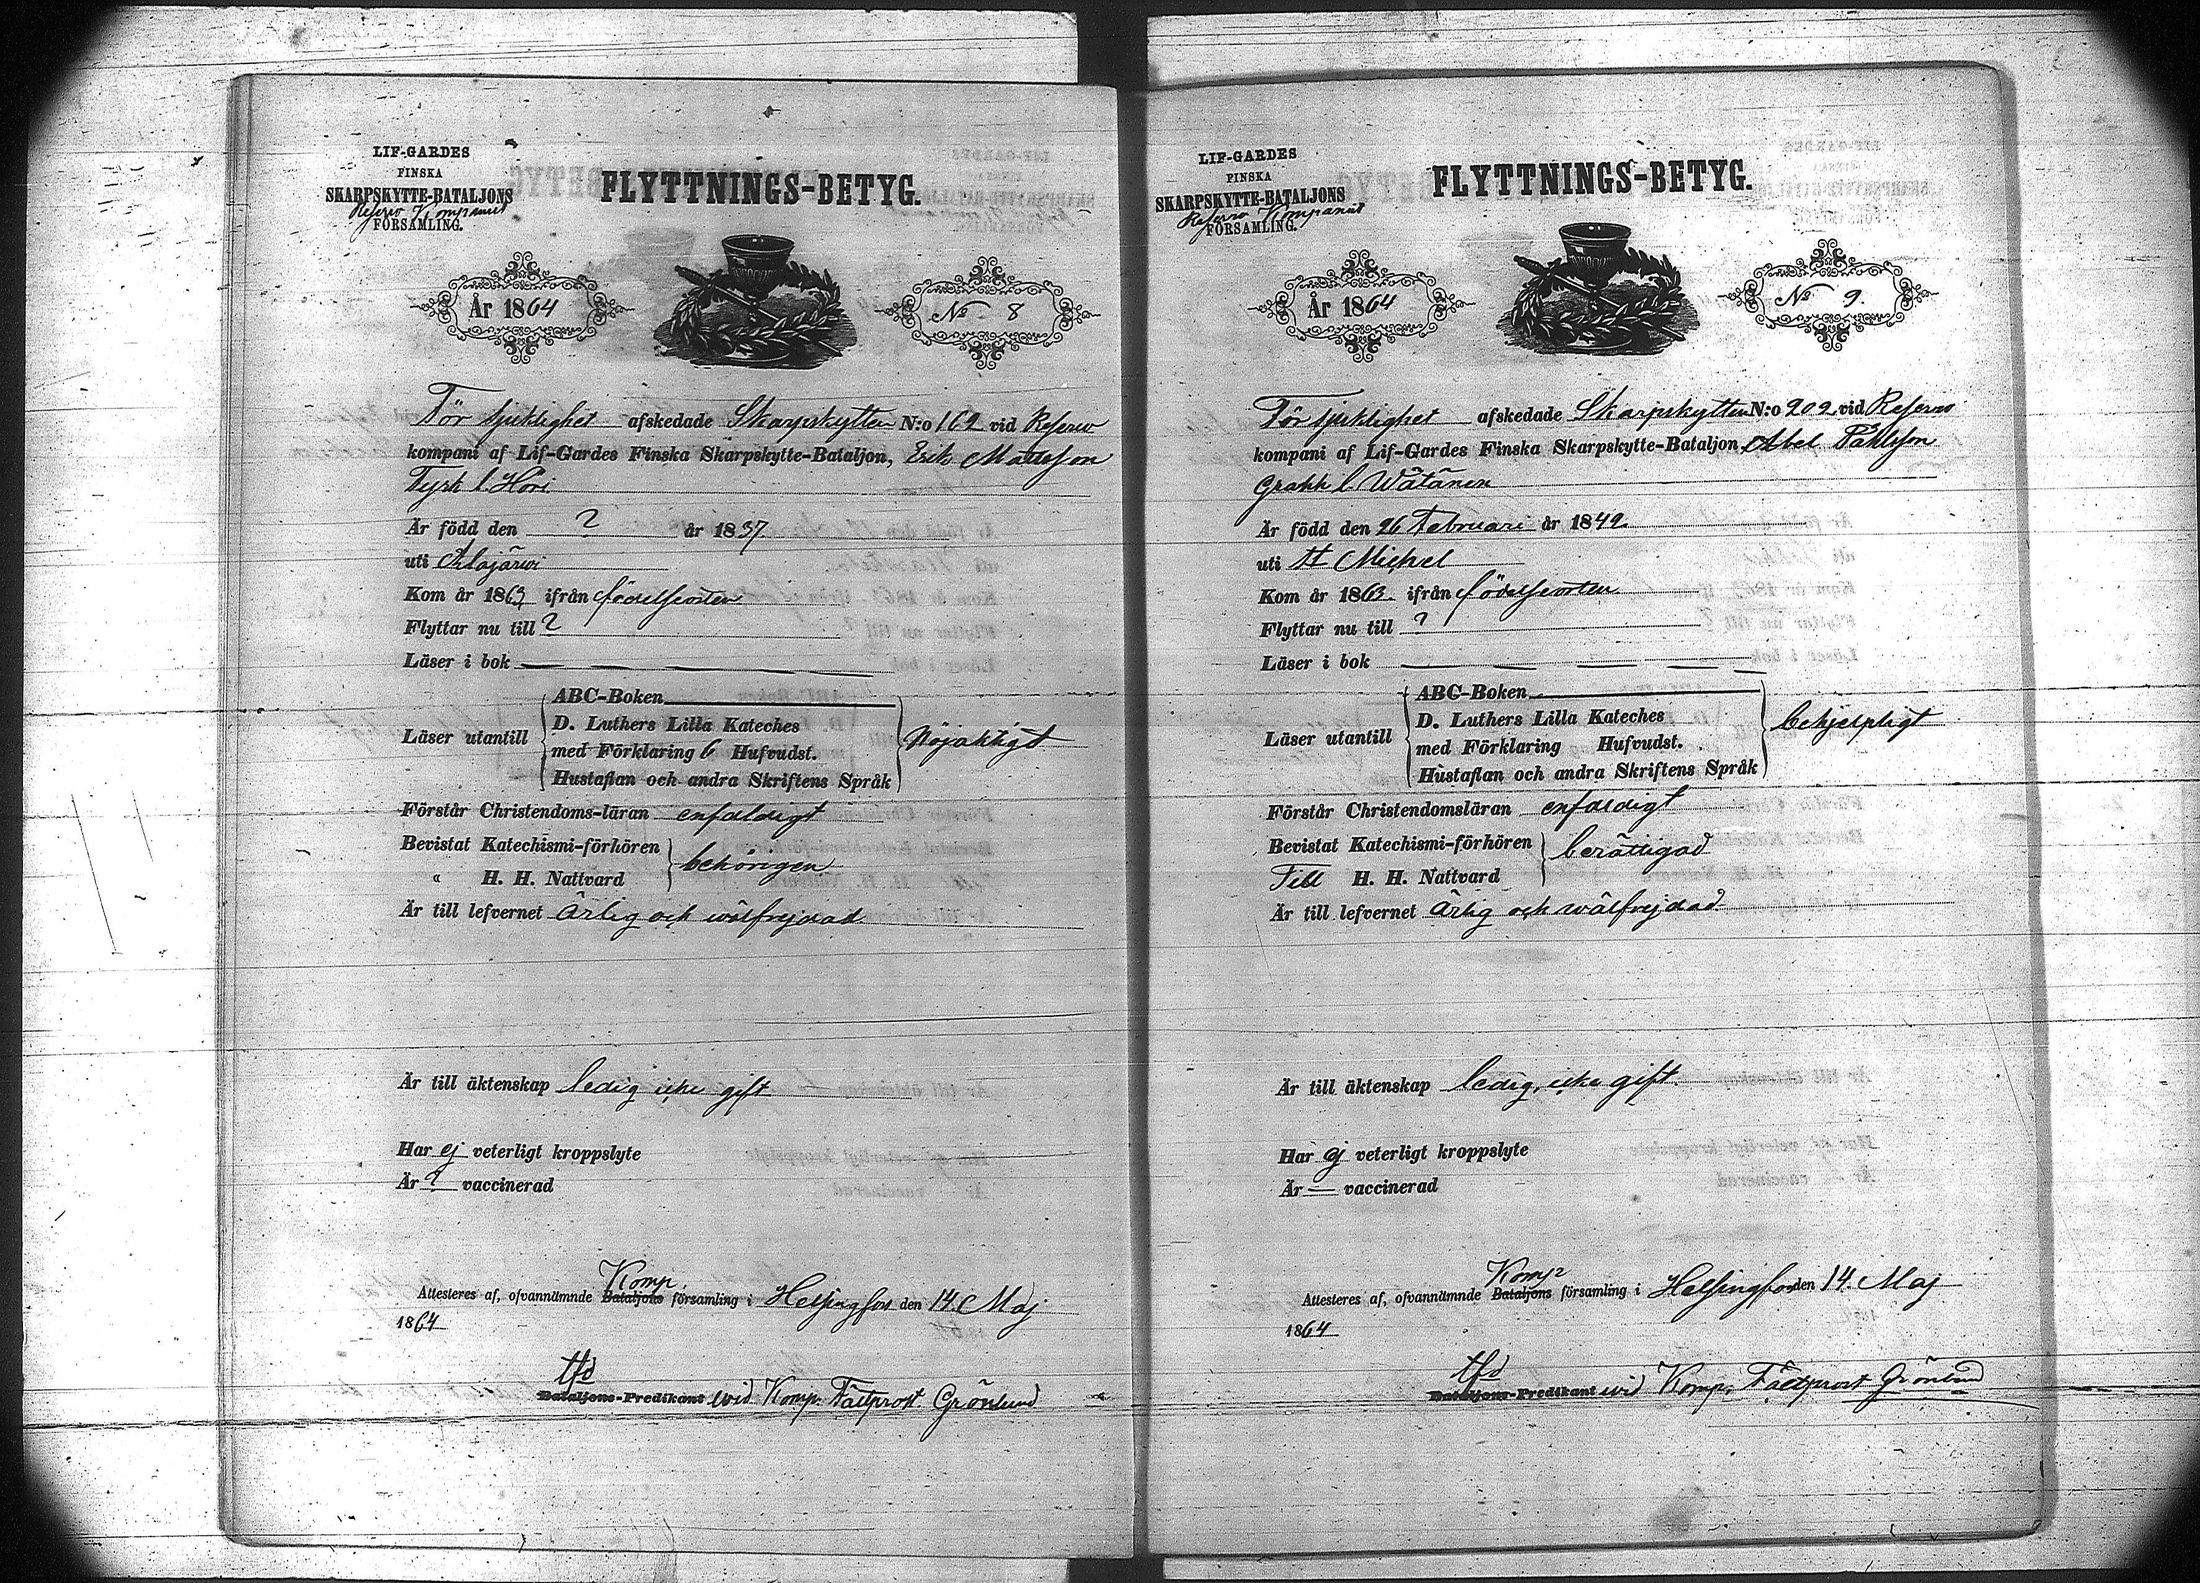 LIF-GARDES
FINSKA
SKARPSKYTTE-BATALJONS
Reserv Kompaniets
FÖRSAMLING.
FLYTTNINGS-BETYG.
År 1864
No 8
För sjuklighet afskedade Skarpskytten N:o 162 vid Reserv
kompani af Lif-Gardes Finska Skarpskytte-Bataljon, Erik Mattsson
Tyrk l. Hori
Är född den ? år 1837.
uti Alajärvi
Kom år 1863 ifrån födelseorten
Flyttar nu till ?
Läser i bok — — — —
Läser utantill
ABC-Boken
D. Luthers Lilla Kateches
med Förklaring 6 Hufvudst.
Hustaflan och andra Skriftens Språk
Nöjaktigt
Förstår Christendoms-läran enfaldigt
Bevistat Katechismi-förhören
" H. H. Nattvard
behörigen
Är till lefvernet Ärlig och wälfrejdad
Är till äktenskap ledig icke gift
Har ej veterligt kroppslyte
Är ? vaccinerad
Komp
Attesteres af, ofvannämnde Bataljons församling i Helsingfors den 14. Maj
1864
tfd
Bataljons-Predikant wid Komp. Fältprost Grönlund
LIF-GARDES
FINSKA
SKARPSKYTTE-BATALJONS
Reserv Kompaniets
FÖRSAMLING.
FLYTTNINGS-BETYG.
År 1864
No 9.
För sjuklighet afskedade Skarpskytten N:o 202 vid Reserv
kompani af Lif-Gardes Finska Skarpskytte-Bataljon, Abel Påhlsson
Grakk l. Wätänen
Är född den 26 Februari år 1842
uti St Michel
Kom år 1863. ifrån födelseorten
Flyttar nu till ?
Läser i bok — — — —
Läser utantill
ABC-Boken
D. Luthers Lilla Kateches
med Förklaring Hufvudst.
Hustaflan och andra Skriftens Språk
behjelpligt
Förstår Christendomsläran enfaldigt
Bevistat Katechismi-förhören
Till H. H. Nattvard
berättigad
Är till lefvernet Ärlig och wälfrejdad
Är till äktenskap ledig, icke gift.
Har ej veterligt kroppslyte
Är — vaccinerad
Komp
Attesteres af, ofvannämnde Bataljons församling i Helsingfors den 14. Maj
1864
tfd
Bataljons-Predikant wid Komp. Fältprost Grönlund